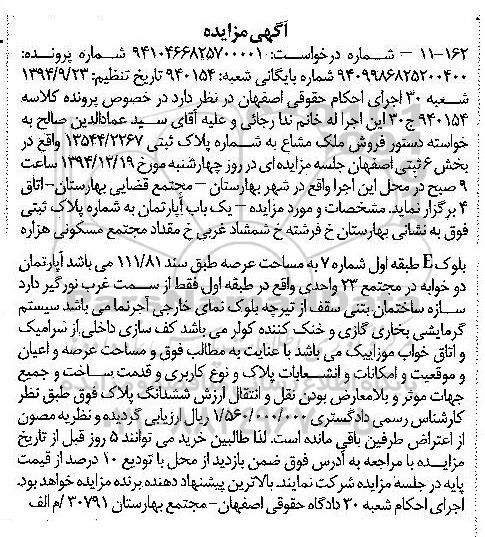 آگهی مزایده
۱۱-۱۶۲ - شماره درخواست: ۹۴۱۰۴۶۶۸۲۵۷۰۰۰۰۱ شماره پرونده:
۹۴۰۹۹۸۶۸۲۵۲۰۰۴۰۰ شماره بایگانی شعبه: ۹۴۰۱۵۴ تاریخ تنظیم: ۱۳۹۴/۹/۲۳
شعبه ۳۰ اجرای احکام حقوقی اصفهان در نظر دارد در خصوص پرونده کلاسه
۹۴۰۱۵۴ ج۳۰ این اجرا له خانم ندا رجائی و علیه آقای سید عمادالدین صالح به
خواسته دستور فروش ملک مشاع به شماره پلاک ثبتی ۱۳۵۴۴/۲۲۶۷ واقع در
بخش ۶ ثبتی اصفهان جلسه مزایده‌ای در روز چهارشنبه مورخ ۱۳۹۴/۱۲/۱۹ ساعت
۹ صبح در محل این اجرا واقع در شهر بهارستان - مجتمع قضایی بهارستان-اتاق
۴ برگزار نماید. مشخصات و مورد مزایده - یک باب آپارتمان به شماره پلاک ثبتی
فوق به نشانی بهارستان خ فرشته خ شمشاد غربی خ مقداد مجتمع مسکونی هزاره
بلوک E طبقه اول شماره ۷ به مساحت عرصه طبق سند ۱۱۱/۸۱ می باشد آپارتمان
دو خوابه در مجتمع ۲۳ واحدی واقع در طبقه اول فقط از سمت غرب نورگیر دارد
سازه ساختمان بتنی سقف از تیرچه بلوک نمای خارجی آجرنما می باشد سیستم
گرمایشی بخاری گازی و خنک کننده کولر می باشد کف سازی داخلی از سرامیک
و اتاق خواب موزاییک می باشد با عنایت به مطالب فوق و مساحت عرصه و اعیان
و موقعیت و امکانات و انشعابات پلاک و نوع کاربری و قدمت ساخت و جمیع
جهات موثر و بلامعارض بودن نقل و انتقال ارزش ششدانگ پلاک فوق طبق نظر
کارشناس رسمی دادگستری ۱/۵۶۰/۰۰۰/۰۰۰ ریال ارزیابی گردیده و نظریه مصون
از اعتراض طرفین باقی مانده است. لذا طالبین خرید می توانند ۵ روز قبل از تاریخ
مزایده با مراجعه به آدرس فوق ضمن بازدید از محل با تودیع ۱۰ درصد از قیمت
پایه در جلسه مزایده شرکت نمایند. بالاترین پیشنهاد دهنده برنده مزایده خواهد بود.
اجرای احکام شعبه ۳۰ دادگاه حقوقی اصفهان-مجتمع بهارستان ۳۰۷۹۱ /م الف